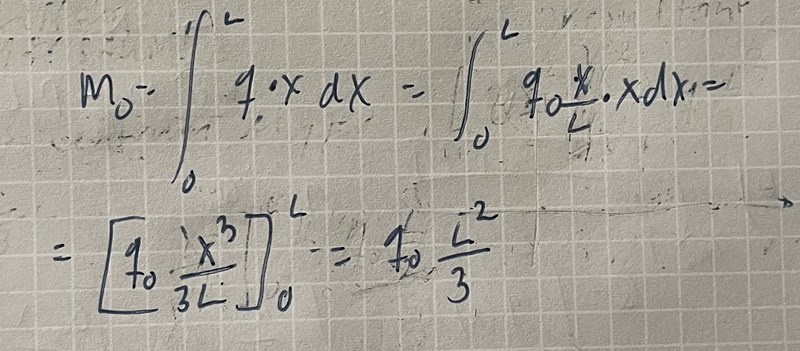 M₀ = ∫₀ᴸ q·x dx = ∫₀ᴸ q₀ x/L · x dx =
= [q₀ x³/3L]₀ᴸ = q₀ L²/3